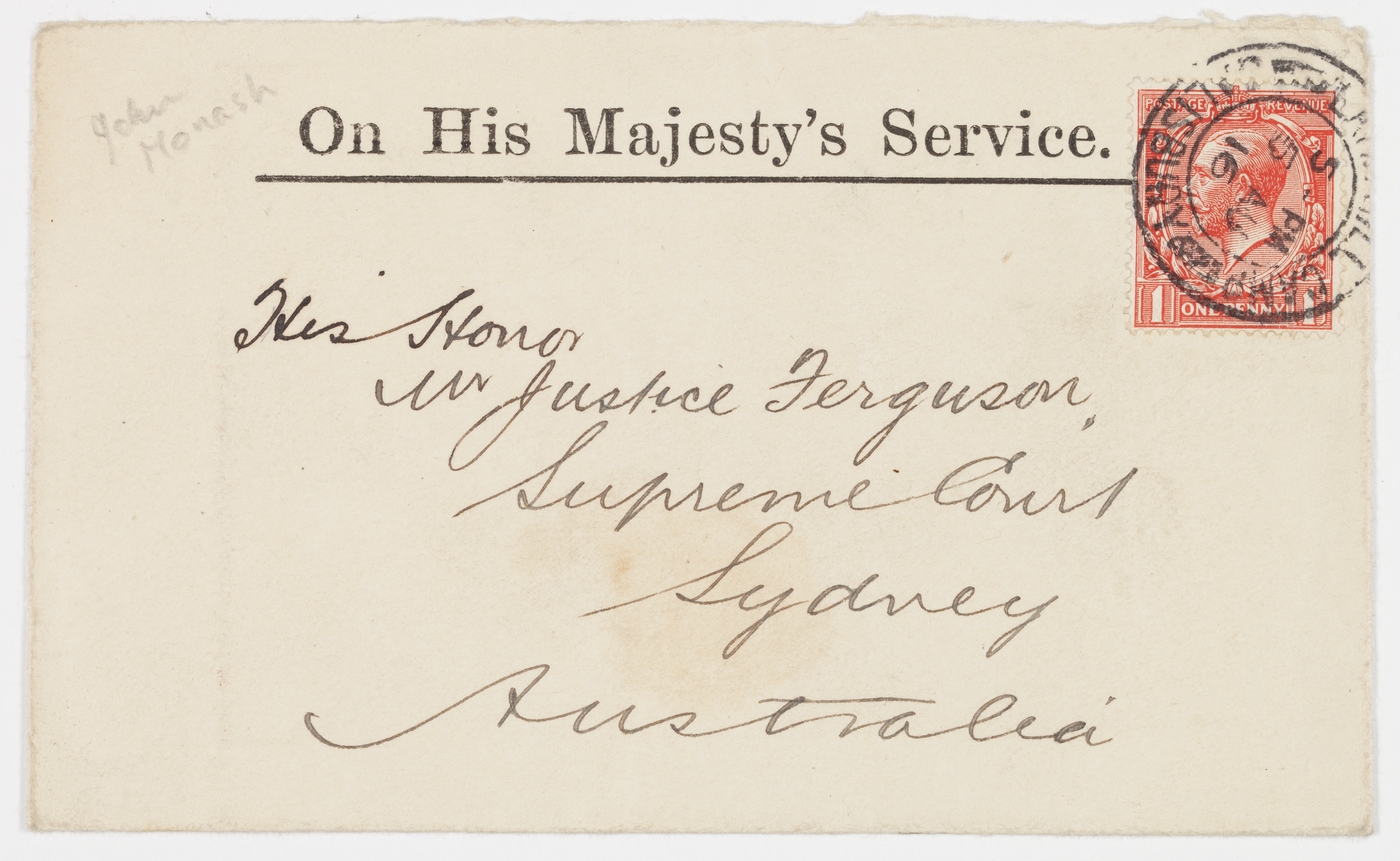 John
Monash
On His Majesty's Service.
POSTAGE REVENUE
5 - PM
16 AU
1 ONE PENNY 1
His Honor
Mr Justice Ferguson,
Supreme Court
Sydney
Australia